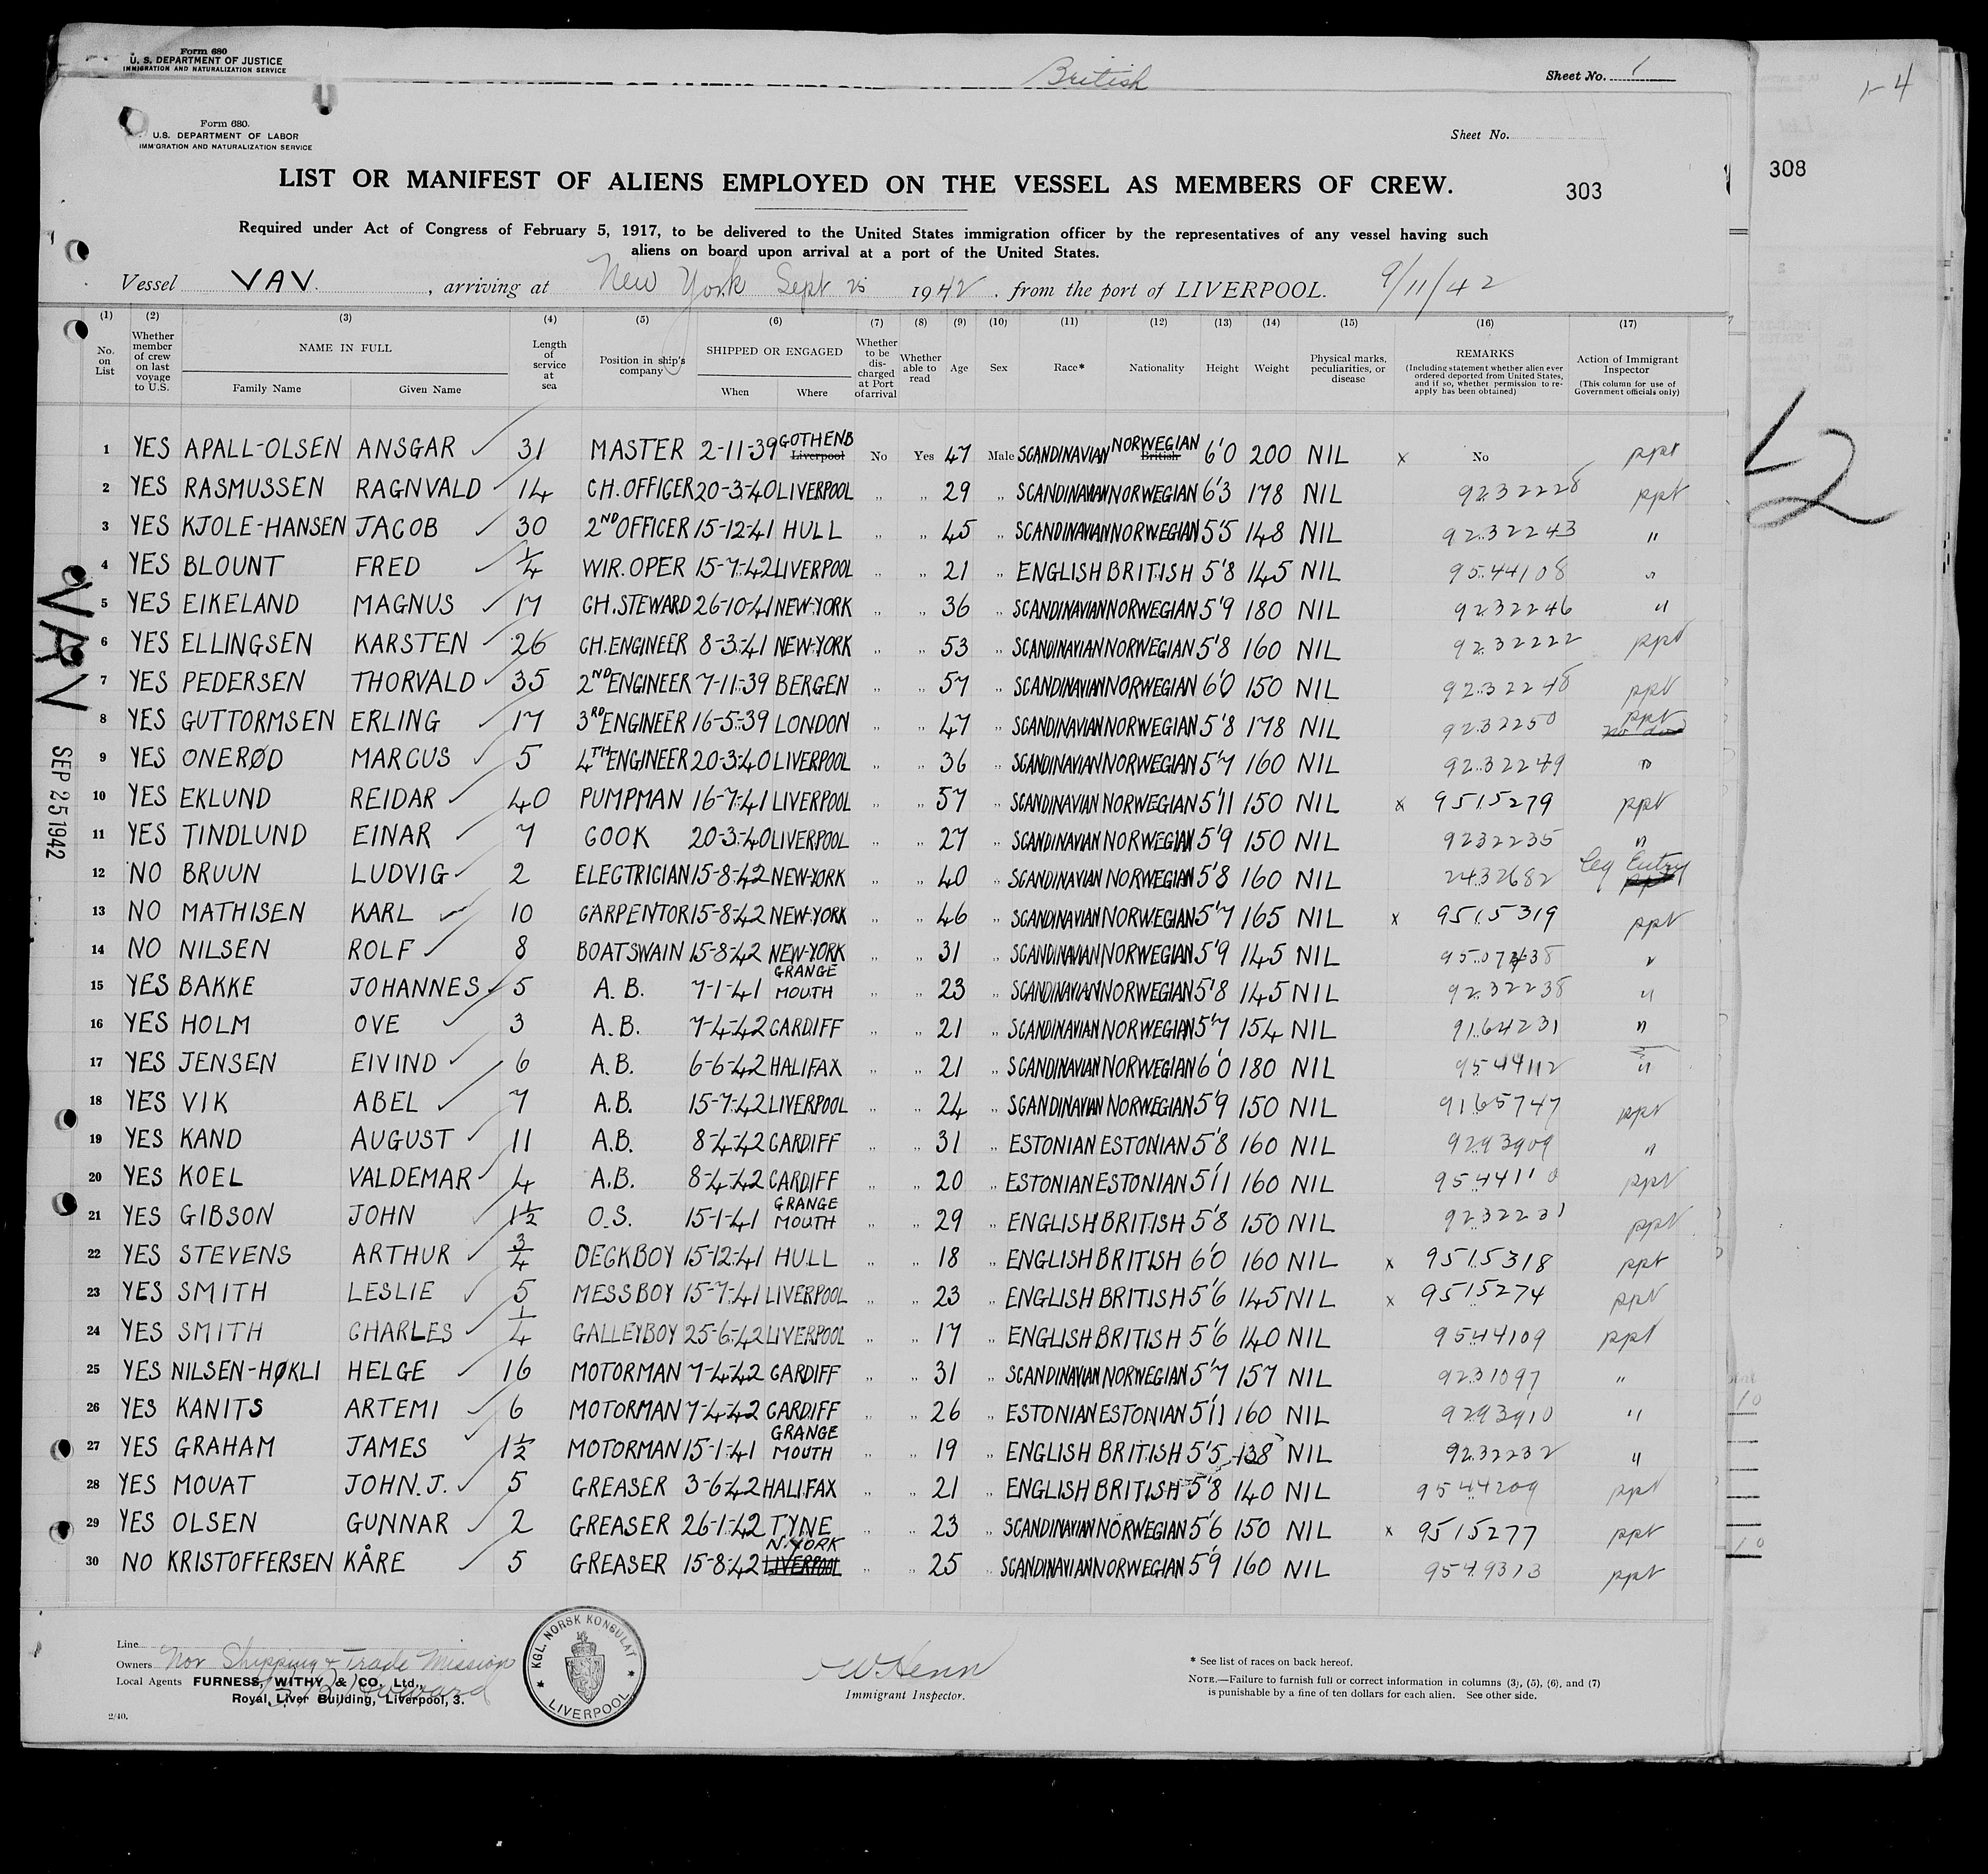 Form 680
U. S. DEPARTMENT OF JUSTICE
IMMIGRATION AND NATURALIZATION SERVICE
British
Sheet No. 1
1-4
Form 680.
U.S. DEPARTMENT OF LABOR
IMMIGRATION AND NATURALIZATION SERVICE
Sheet No.
308
LIST OR MANIFEST OF ALIENS EMPLOYED ON THE VESSEL AS MEMBERS OF CREW.
303
Required under Act of Congress of February 5, 1917, to be delivered to the United States immigration officer by the representatives of any vessel having such
aliens on board upon arrival at a port of the United States.
Vessel VAV. , arriving at New York Sept 25 1942 , from the port of LIVERPOOL. 9/11/42
(1) (2) (3) (4) (5) (6) (7) (8) (9) (10) (11) (12) (13) (14) (15) (16) (17)
No. on List
Whether member of crew on last voyage to U.S.
NAME IN FULL
Family Name Given Name
Length of service at sea
Position in ship's company
SHIPPED OR ENGAGED
When Where
Whether to be discharged at Port of arrival
Whether able to read
Age
Sex
Race*
Nationality
Height
Weight
Physical marks, peculiarities, or disease
REMARKS
(Including statement whether alien ever ordered deported from United States, and if so, whether permission to re-apply has been obtained)
Action of Immigrant Inspector
(This column for use of Government officials only)
1 YES APALL-OLSEN ANSGAR ✓ 31 MASTER 2-11-39 GOTHENB Liverpool No Yes 47 Male SCANDINAVIAN NORWEGIAN British 6'0 200 NIL x No ppt
2 YES RASMUSSEN RAGNVALD ✓ 14 CH.OFFICER 20-3-40 LIVERPOOL " " 29 " SCANDINAVIAN NORWEGIAN 6'3 178 NIL 9232228 ppt
3 YES KJOLE-HANSEN JACOB ✓ 30 2ND OFFICER 15-12-41 HULL " " 45 " SCANDINAVIAN NORWEGIAN 5'5 148 NIL 9232243 "
4 YES BLOUNT FRED ✓ 1/4 WIR.OPER 15-7-42 LIVERPOOL " " 21 " ENGLISH BRITISH 5'8 145 NIL 9544108 "
5 YES EIKELAND MAGNUS ✓ 17 CH.STEWARD 26-10-41 NEW-YORK " " 36 " SCANDINAVIAN NORWEGIAN 5'9 180 NIL 9232246 "
6 YES ELLINGSEN KARSTEN ✓ 26 CH.ENGINEER 8-3-41 NEW-YORK " " 53 " SCANDINAVIAN NORWEGIAN 5'8 160 NIL 9232222 ppt
7 YES PEDERSEN THORVALD ✓ 35 2ND ENGINEER 7-11-39 BERGEN " " 57 " SCANDINAVIAN NORWEGIAN 6'0 150 NIL 9232248 ppt
8 YES GUTTORMSEN ERLING ✓ 17 3RD ENGINEER 16-5-39 LONDON " " 47 " SCANDINAVIAN NORWEGIAN 5'8 178 NIL 9232250 ppt
9 YES ONERØD MARCUS ✓ 5 4TH ENGINEER 20-3-40 LIVERPOOL " " 36 " SCANDINAVIAN NORWEGIAN 5'7 160 NIL 9232249 "
10 YES EKLUND REIDAR ✓ 40 PUMPMAN 16-7-41 LIVERPOOL " " 57 " SCANDINAVIAN NORWEGIAN 5'11 150 NIL x 9515279 ppt
11 YES TINDLUND EINAR ✓ 7 COOK 20-3-40 LIVERPOOL " " 27 " SCANDINAVIAN NORWEGIAN 5'9 150 NIL 9232235 "
12 NO BRUUN LUDVIG ✓ 2 ELECTRICIAN 15-8-42 NEW-YORK " " 40 " SCANDINAVIAN NORWEGIAN 5'8 160 NIL 2432682 Leg Entry
13 NO MATHISEN KARL ✓ 10 CARPENTOR 15-8-42 NEW-YORK " " 46 " SCANDINAVIAN NORWEGIAN 5'7 165 NIL x 9515319 ppt
14 NO NILSEN ROLF ✓ 8 BOATSWAIN 15-8-42 NEW-YORK " " 31 " SCANDINAVIAN NORWEGIAN 5'9 145 NIL "
15 YES BAKKE JOHANNES ✓ 5 A.B. 7-1-41 GRANGE MOUTH " " 23 " SCANDINAVIAN NORWEGIAN 5'8 145 NIL 9232238 "
16 YES HOLM OVE ✓ 3 A.B. 7-4-42 CARDIFF " " 21 " SCANDINAVIAN NORWEGIAN 5'7 154 NIL 9164231 "
17 YES JENSEN EIVIND ✓ 6 A.B. 6-6-42 HALIFAX " " 21 " SCANDINAVIAN NORWEGIAN 6'0 180 NIL 9544112 "
18 YES VIK ABEL ✓ 7 A.B. 15-7-42 LIVERPOOL " " 24 " SCANDINAVIAN NORWEGIAN 5'9 150 NIL 9165747 ppt
19 YES KAND AUGUST ✓ 11 A.B. 8-4-42 CARDIFF " " 31 " ESTONIAN ESTONIAN 5'8 160 NIL 9293909 "
20 YES KOEL VALDEMAR ✓ 4 A.B. 8-4-42 CARDIFF " " 20 " ESTONIAN ESTONIAN 5'11 160 NIL 9544110 ppt
21 YES GIBSON JOHN ✓ 1 1/2 O.S. 15-1-41 GRANGE MOUTH " " 29 " ENGLISH BRITISH 5'8 150 NIL 9232231 ppt
22 YES STEVENS ARTHUR ✓ 3/4 DECKBOY 15-12-41 HULL " " 18 " ENGLISH BRITISH 6'0 160 NIL x 9515318 ppt
23 YES SMITH LESLIE ✓ 5 MESSBOY 15-7-41 LIVERPOOL " " 23 " ENGLISH BRITISH 5'6 145 NIL x 9515274 ppt
24 YES SMITH CHARLES ✓ 1/4 GALLEYBOY 25-6-42 LIVERPOOL " " 17 " ENGLISH BRITISH 5'6 140 NIL 9544109 ppt
25 YES NILSEN-HØKLI HELGE ✓ 16 MOTORMAN 7-4-42 CARDIFF " " 31 " SCANDINAVIAN NORWEGIAN 5'7 157 NIL 9231097 "
26 YES KANITS ARTEMI ✓ 6 MOTORMAN 7-4-42 CARDIFF " " 26 " ESTONIAN ESTONIAN 5'11 160 NIL 9293910 "
27 YES GRAHAM JAMES ✓ 1 1/2 MOTORMAN 15-1-41 GRANGE MOUTH " " 19 " ENGLISH BRITISH 5'5 138 NIL 9232232 "
28 YES MOUAT JOHN.J. ✓ 5 GREASER 3-6-42 HALIFAX " " 21 " ENGLISH BRITISH 5'8 140 NIL 9544209 ppt
29 YES OLSEN GUNNAR ✓ 2 GREASER 26-1-42 TYNE " " 23 " SCANDINAVIAN NORWEGIAN 5'6 150 NIL x 9515277 ppt
30 NO KRISTOFFERSEN KÅRE ✓ 5 GREASER 15-8-42 N.YORK LIVERPOOL " " 25 " SCANDINAVIAN NORWEGIAN 5'9 160 NIL 9549313 ppt
VAV
SEP 25 1942
12
Line
Owners Nor Shipping & Trade Mission
Local Agents FURNESS, WITHY & CO. Ltd.,
Royal Liver Building, Liverpool, 3.
2/40.
KGL. NORSK KONSULAT
LIVERPOOL
Immigrant Inspector.
* See list of races on back hereof.
NOTE.—Failure to furnish full or correct information in columns (3), (5), (6), and (7)
is punishable by a fine of ten dollars for each alien. See other side.